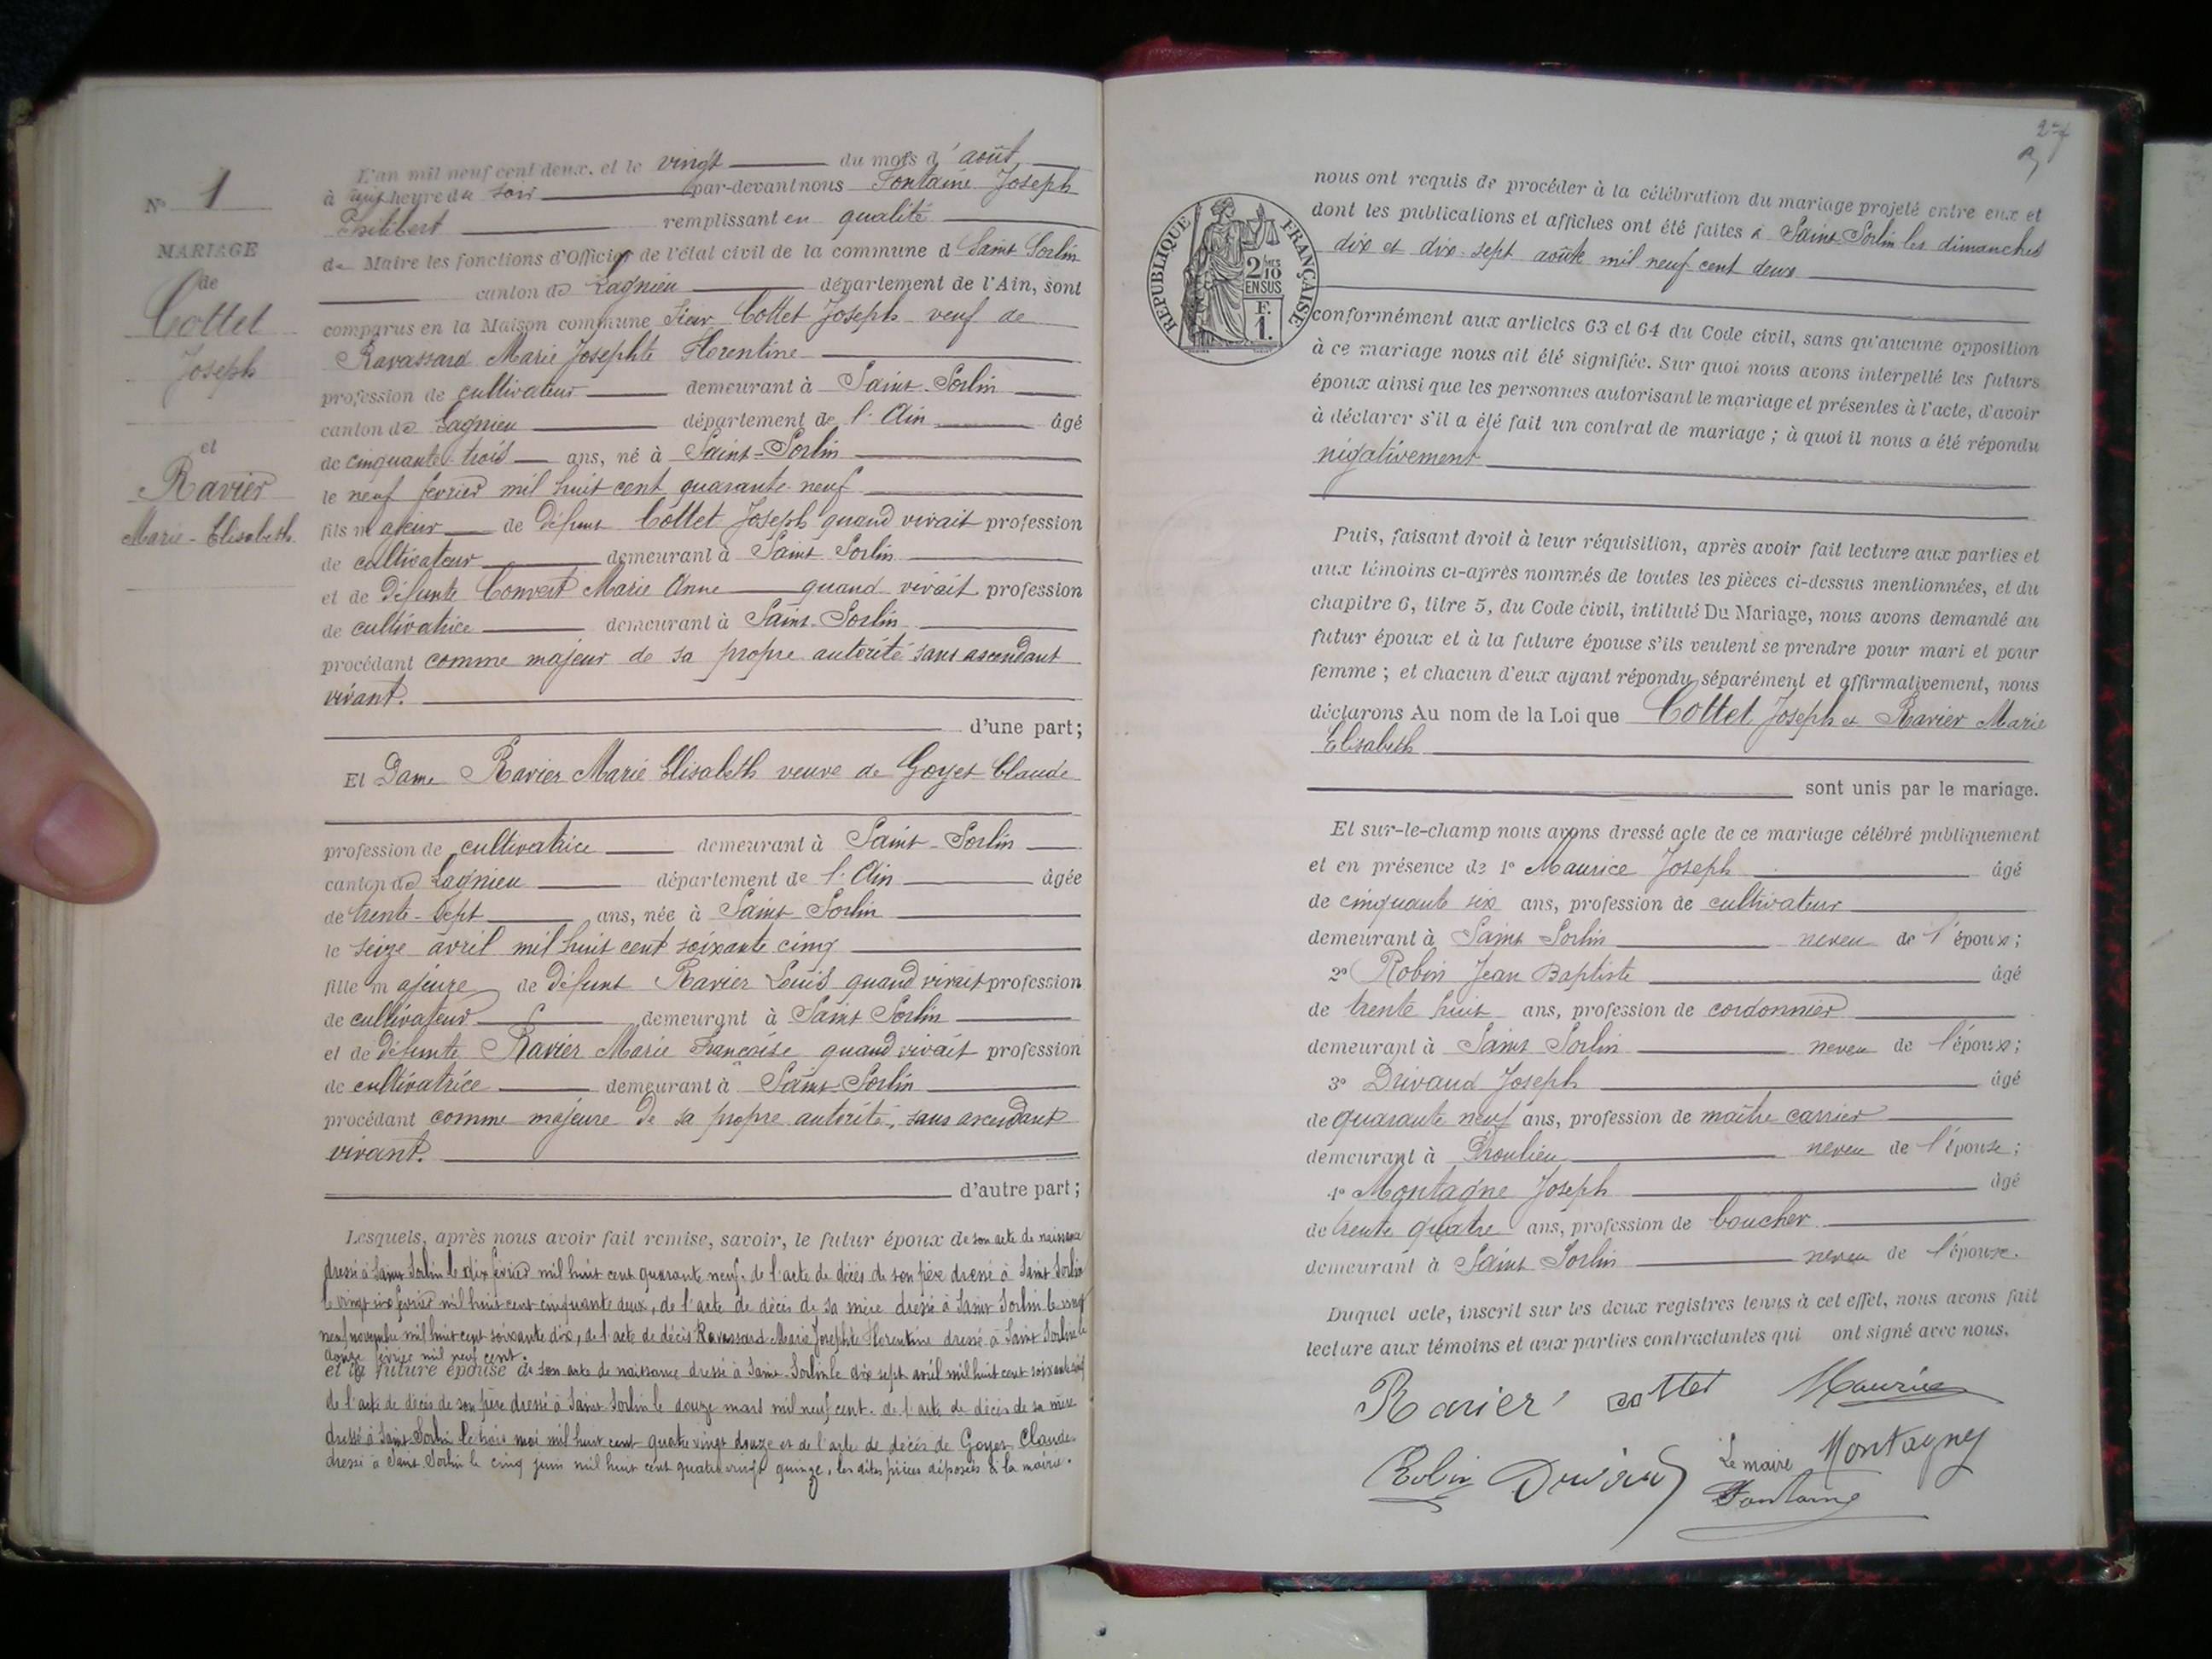 N° 1
MARIAGE
de
Cottet
Joseph
et
Ravier
Marie-Elisabeth.
L'an mil neuf cent deux, et le vingt du mois d'août
à huit heure du soir par-devant nous Fontaine Joseph
Philibert remplissant en qualité
de Maire les fonctions d'Officier de l'état civil de la commune d Saint Sorlin
canton de Lagnieu département de l'Ain, sont
comparus en la Maison commune Sieur Cottet Joseph veuf de
Ravassard Marie Josephte Florentine
profession de cultivateur demeurant à Saint-Sorlin
canton de Lagnieu département de l'Ain âgé
de cinquante trois ans, né à Saint-Sorlin
le neuf février mil huit cent quarante-neuf
fils majeur de défunt Cottet Joseph quand vivait profession
de cultivateur demeurant à Saint Sorlin
et de défunte Convert Marie Anne quand vivait profession
de cultivatrice demeurant à Saint-Sorlin
procédant comme majeur de sa propre autorité sans ascendant
vivant.
d'une part;
Et Dame Ravier Marie Elisabeth veuve de Goyet Claude
profession de cultivatrice demeurant à Saint-Sorlin
canton de Lagnieu département de l'Ain âgée
de trente-sept ans, née à Saint-Sorlin
le seize avril mil huit cent soixante cinq
fille majeure de défunt Ravier Louis quand vivait profession
de cultivateur demeurant à Saint Sorlin
et de défunte Ravier Marie Françoise quand vivait profession
de cultivatrice demeurant à Saint-Sorlin
procédant comme majeure de sa propre autorité, sans ascendant
vivant.
d'autre part;
Lesquels, après nous avoir fait remise, savoir, le futur époux de son acte de naissance
dressé à Saint Sorlin le dix février mil huit cent quarante neuf, de l'acte de décès de son père dressé à Saint Sorlin
le vingt six février mil huit cent cinquante deux, de l'acte de décès de sa mère dressé à Saint Sorlin le vingt
neuf novembre mil huit cent soixante dix, de l'acte de décès Ravassard Marie Josephte Florentine dressé à Saint Sorlin le
douze février mil neuf cent.
et la future épouse de son acte de naissance dressé à Saint-Sorlin le dix sept avril mil huit cent soixante cinq
de l'acte de décès de son père dressé à Saint-Sorlin le douze mars mil neuf cent. de l'acte de décès de sa mère
dressé à Saint Sorlin le trois mai mil huit cent quatre vingt douze et de l'acte de décès de Goyet Claude
dressé à Saint Sorlin le cinq juin mil huit cent quatre vingt quinze, les dites pièces déposées à la mairie.
27
RÉPUBLIQUE FRANÇAISE
2 10
EN SUS
F.
1.
nous ont requis de procéder à la célébration du mariage projeté entre eux et
dont les publications et affiches ont été faites à Saint-Sorlin les dimanches
dix et dix-sept août mil neuf cent deux
conformément aux articles 63 et 64 du Code civil, sans qu'aucune opposition
à ce mariage nous ait été signifiée. Sur quoi nous avons interpellé les futurs
époux ainsi que les personnes autorisant le mariage et présentes à l'acte, d'avoir
à déclarer s'il a été fait un contrat de mariage; à quoi il nous a été répondu
négativement
Puis, faisant droit à leur réquisition, après avoir fait lecture aux parties et
aux témoins ci-après nommés de toutes les pièces ci-dessus mentionnées, et du
chapitre 6, titre 5, du Code civil, intitulé Du Mariage, nous avons demandé au
futur époux et à la future épouse s'ils veulent se prendre pour mari et pour
femme; et chacun d'eux ayant répondu séparément et affirmativement, nous
déclarons Au nom de la Loi que Cottet Joseph et Ravier Marie
Elisabeth
sont unis par le mariage.
Et sur-le-champ nous avons dressé acte de ce mariage célébré publiquement
et en présence de 1° Maurice Joseph âgé
de cinquante six ans, profession de cultivateur
demeurant à Saint Sorlin neveu de l'époux;
2° Robin Jean Baptiste âgé
de trente huit ans, profession de cordonnier
demeurant à Saint Sorlin neveu de l'époux;
3° Drivaud Joseph âgé
de quarante neuf ans, profession de maître carrier
demeurant à neveu de l'épouse;
4° Montagne Joseph âgé
de trente quatre ans, profession de boucher
demeurant à Saint Sorlin neveu de l'épouse.
Duquel acte, inscrit sur les deux registres tenus à cet effet, nous avons fait
lecture aux témoins et aux parties contractantes qui ont signé avec nous.
Ravier cottet Maurice
Robin Drivaud Le maire Montagny
Fontaine